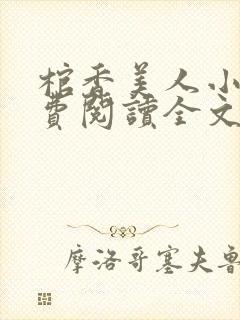 棺香美人小
費閱讀全文
摩洛哥塞夫魯